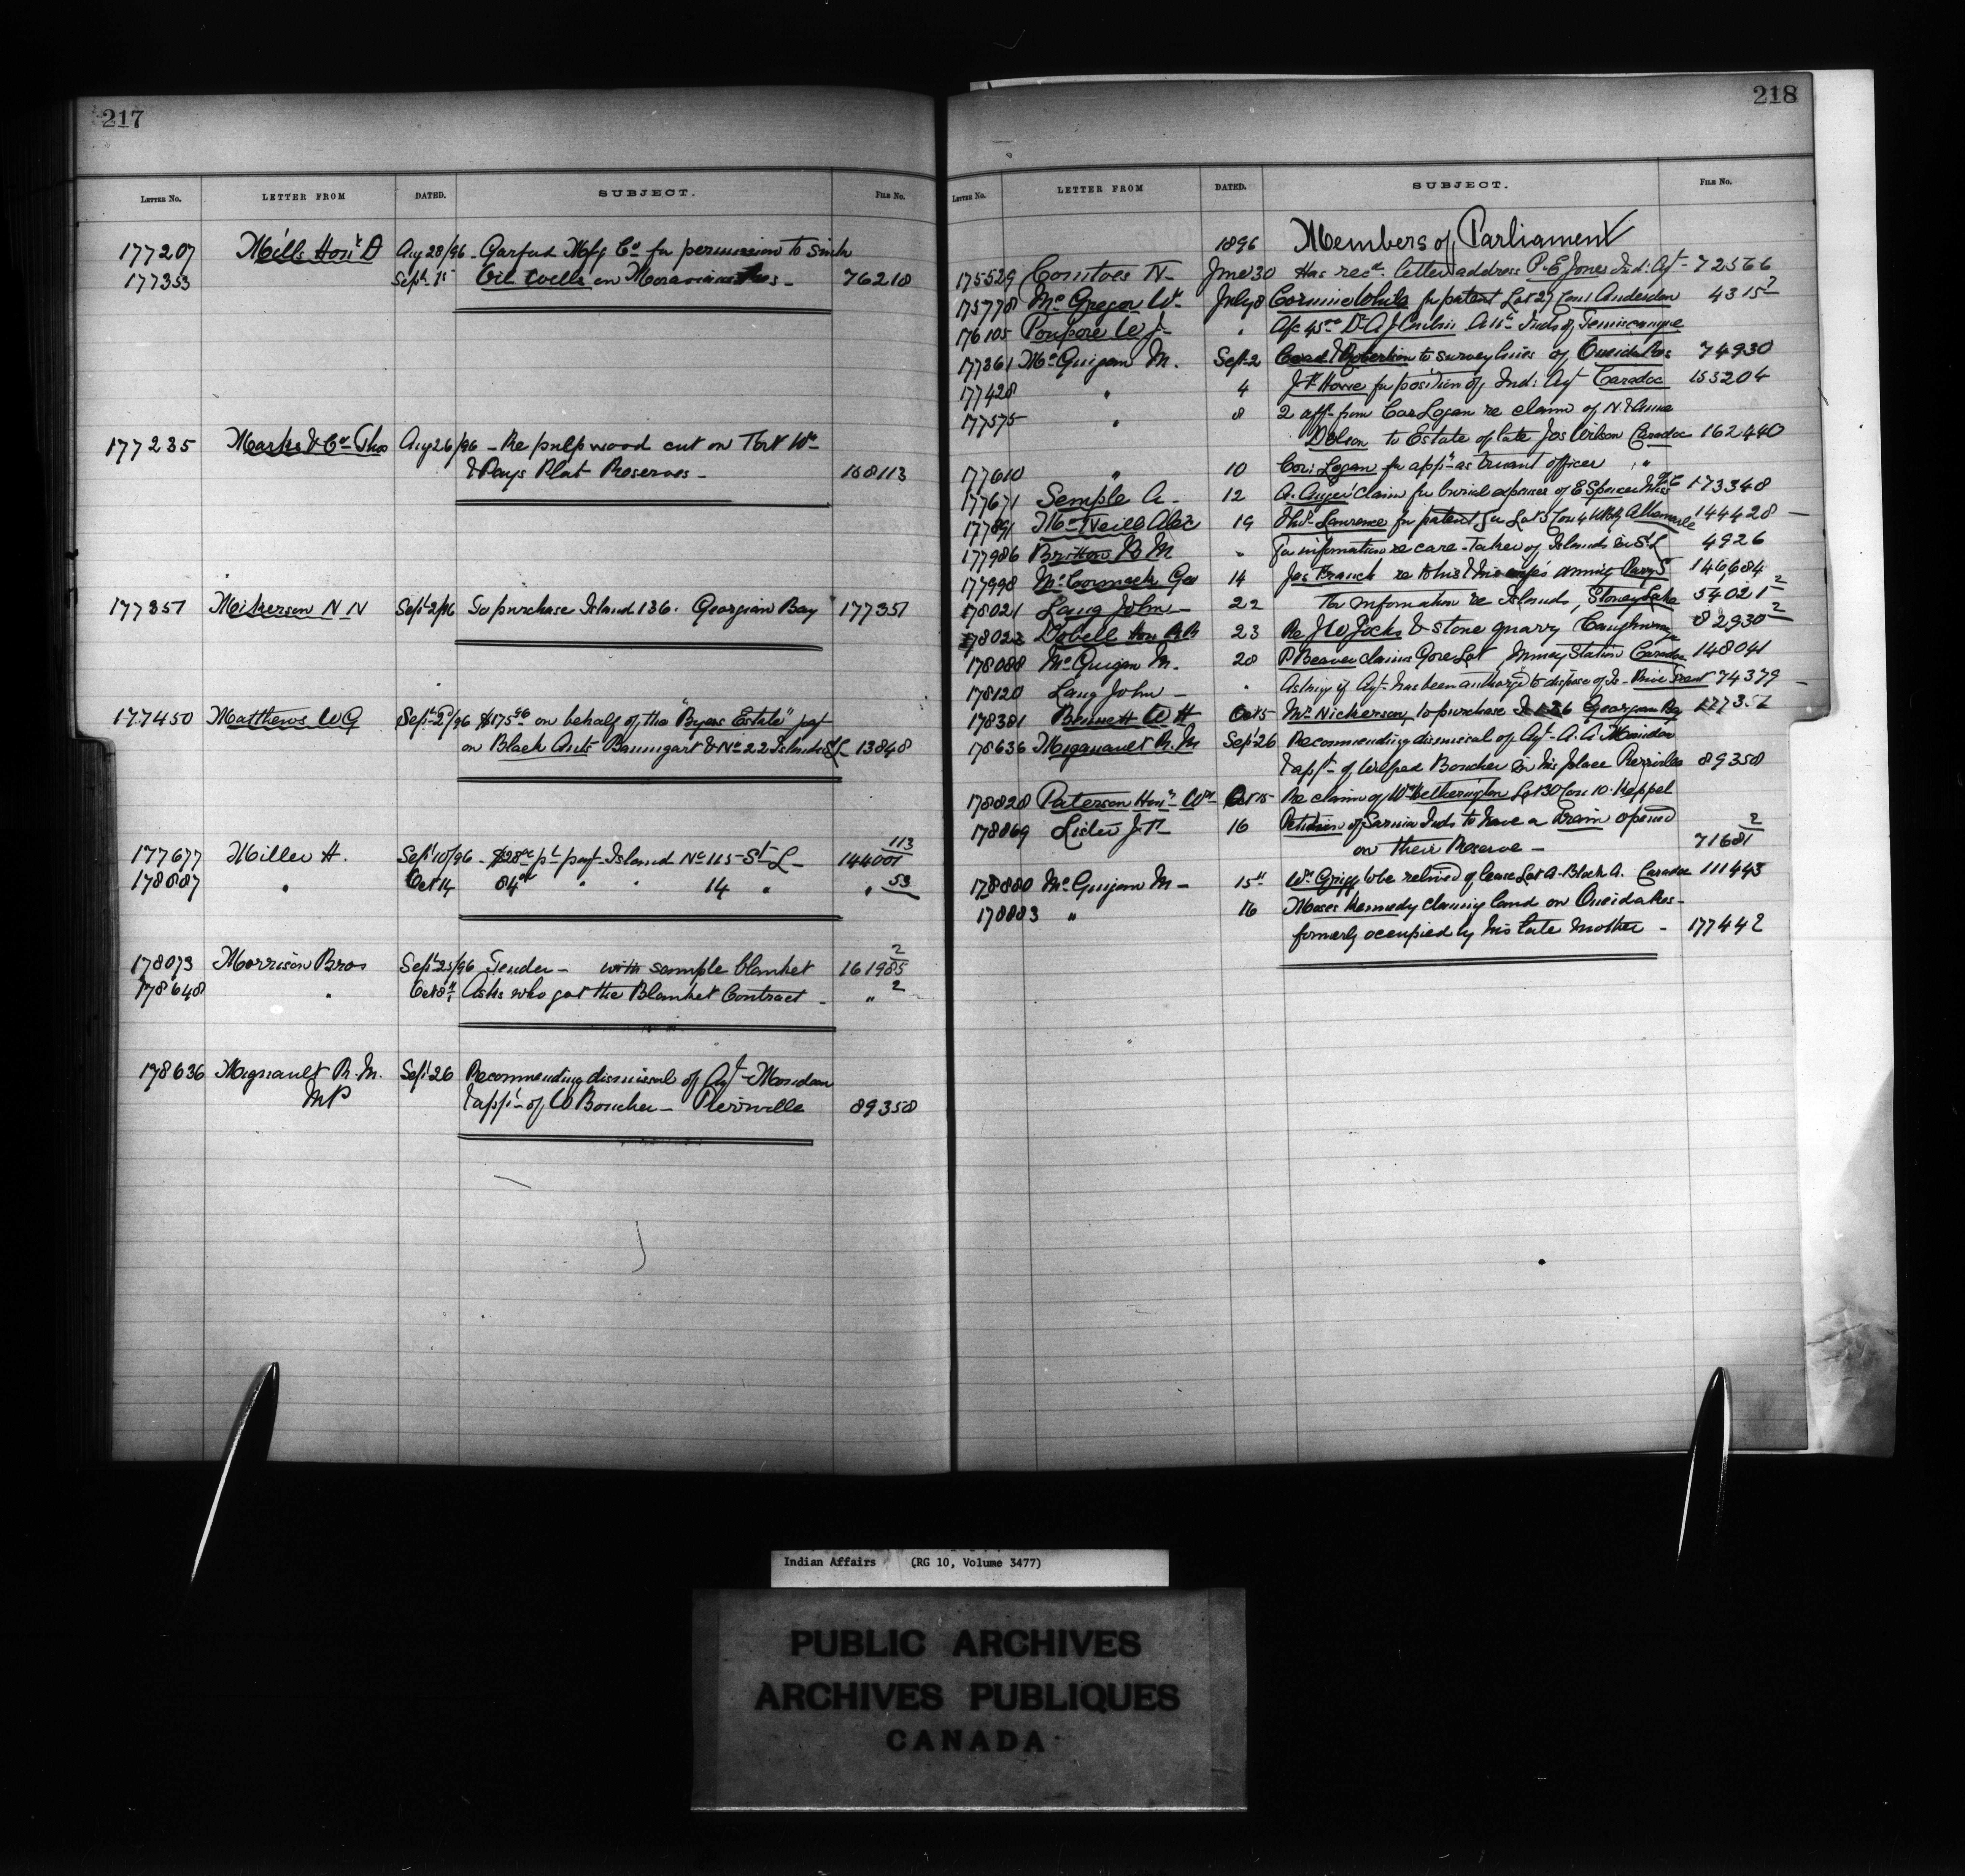 217
LETTER NO. LETTER FROM DATED. SUBJECT. FILE No.
177207 Mills Honr D Aug 28/96 Garfud Mfg Co for permission to sink
177353 Sept 15 Oil Wells on Moravian Res - 76218
177235 Marks & Co Thos Aug 26/96 - Re pulp wood cut on Fort Wm
& Pays Plat Reserves - 168113
177351 Nickerson N N Sept 2/96 To purchase Island 136. Georgian Bay 177351
177450 Matthews W G Sept 2d/96 $175.00 on behalf of the "Byers Estate" pay't
on Black Ants Baumgart & No 22 Islands St L 13848
177677 Miller H. Sept 10/96 - $28.00 pt pay't Island No 115 - St L - 144001 113
178887 " Oct 14 84.00 " " 14 " " 53
178073 Morrison Bros Sept 25/96 Tender - with sample blanket 161985 2
178648 " Oct 8th Asks who got the Blanket Contract - " 2
178636 Mignault R. M. Sept 26 Recommending dismissal of Agt
MP & app't of W Boucher - Pierreville 89358
218
LETTER NO. LETTER FROM DATED. SUBJECT. FILE No.
1896 Members of Parliament
175529 Comstock N - June 30 Has recd. letter address P. E Jones Ind: Agt - 72566
175778 McGregor Wm July 8 White for patent Lot 27 Con 1 Anderdon 4315 2
176105 Poupore W J - " A/c 45.00 Dr A J Att'e Inds of Temiscamgue
177361 McGuigan M. Sept 2 Coad & Robertson to survey lines of Oneida Res 74930
177428 " 4 J F Howe for position of Ind: Agt Caradoc 153204
177575 " 8 2 aff- from Cor Logan re claim of N & Annie
Dolson to Estate of late Jos Wilson Caradoc 162440
177610 " 10 Cor: Logan for app't as truant officer " "
177671 Semple A - 12 A. Auger claim for burial expenses of E Spencer 173348
177891 McNeill Alex 19 Lawrence for patent for Lot 3 Con 4 Albemarle 144428 -
177986 Britton B M " For information re care-taker of Islands in St L 4926
177998 McCormack Geo 14 Jas Franck re to his & his wife's annuity Parry S 146684
178021 Lang John - 22 For information re Islands, Stoney Lake 54021 2
178023 Dobell Hon R R 23 Re J W Jocks & stone quarry Caughnawaga 82930 2
178088 McGuigan M. 28 P Beaver claims Gore Lot, Muncey Station Caradoc 148041
178120 Lang John - " Asking if Agt has been authorized to dispose of Is - Pine Tree 74379 -
178381 Bennett W H Oct 5 Mr Nickerson to purchase I 136 Georgian Bay 177351
178636 Mignault R. M Sept 26 Recommending dismissal of Agt
& app't of Wilfred Boucher in his place Pierreville 89358
178828 Paterson Honr Wm Oct 15 Re claim of Wm Hetherington Lot 30 Con 10 - Keppel
178869 Lister J. F. 16 Petition of Sarnia Inds to have a Drain opened
on their Reserve - 71681 2
178880 McGuigan M - 15th Wm Grigg to be relieved of lease Lot A - Block A. Caradoc 111443
178883 " 16 Moses Kennedy claiming land on Oneida Res -
formerly occupied by his late mother - 177442
Indian Affairs (RG 10, Volume 3477)
PUBLIC ARCHIVES
ARCHIVES PUBLIQUES
CANADA